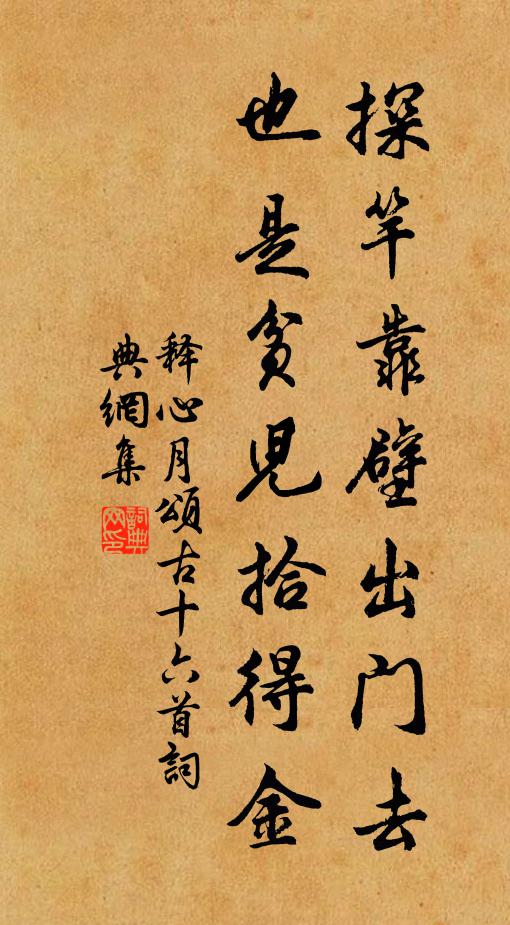 探竿靠壁出门去
也是贫儿拾得金
释心月颂古十六首词
典网集
詞典網印